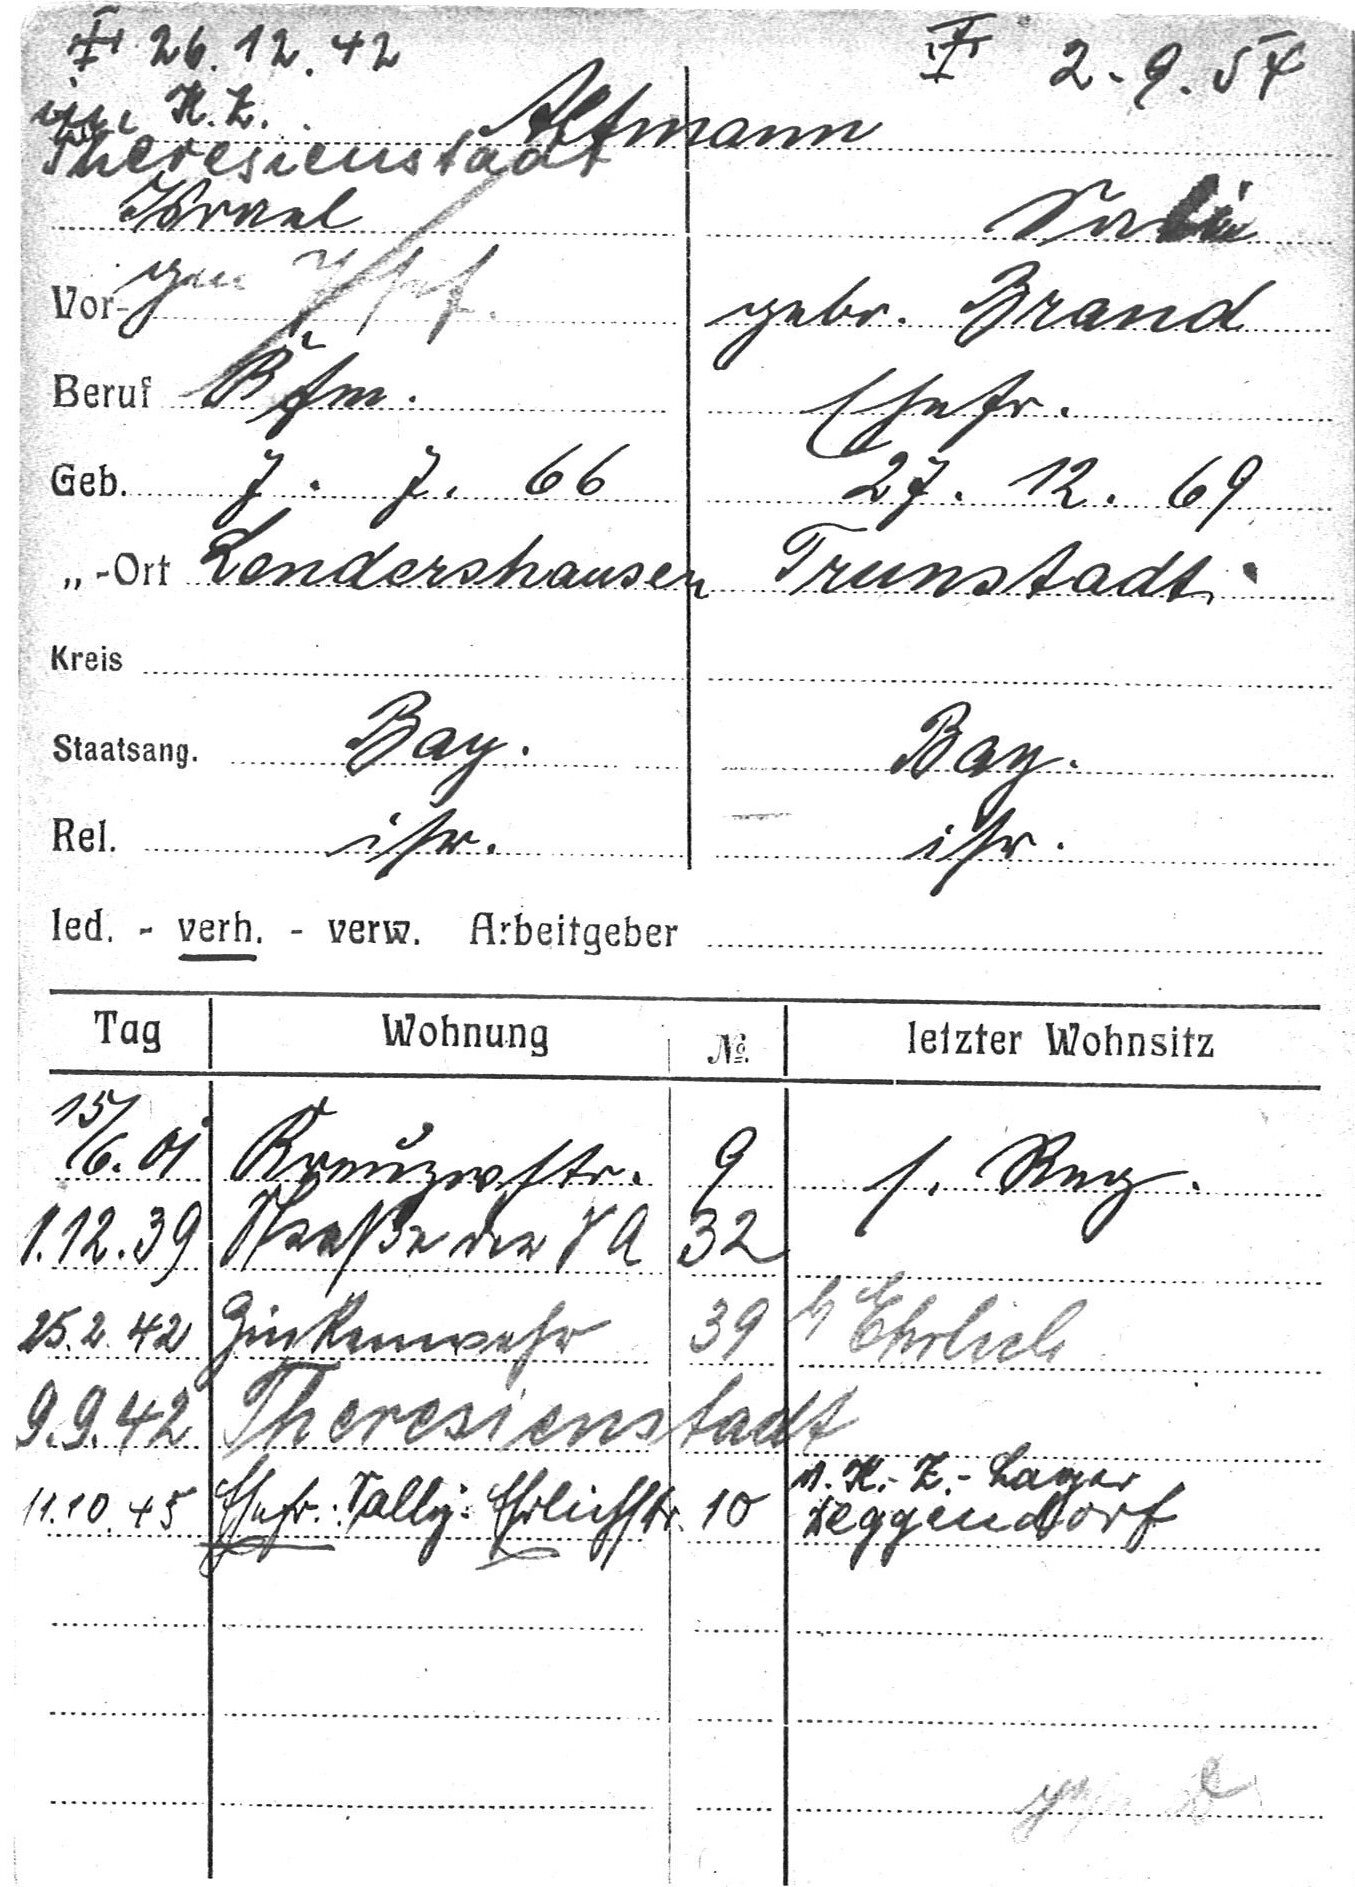 26.12.42
2.9.54
im K.Z.
Theresienstadt
Altmann
Israel
Vor- gen
gebr. Brand
Beruf
Ehefr.
Geb. 7. 7. 66
27. 12. 69
„ -Ort Lendershausen
Trunstadt.
Kreis
Staatsang. Bay.
Bay.
Rel. isr.
isr.
led. - verh. - verw. Arbeitgeber
Tag Wohnung № letzter Wohnsitz
15/6.01 9 s. Reg.
1.12.39 Straße der SA 32
25.2.42 Zinkenwehr 39 b/ Ehrlich
9.9.42 Theresienstadt
11.10.45 Ehefr.: Sally: Ehrlichstr. 10 v. K.-Z.-Lager
Deggendorf